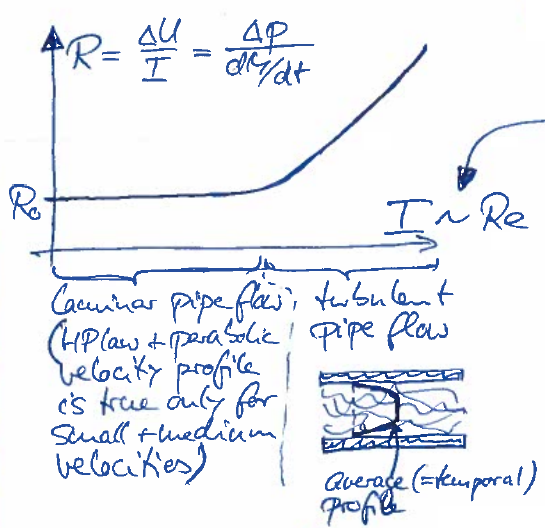 R = ΔU/I = Δp/dV/dt
R₀
I ~ Re
Laminar pipe flow,
(HP law + parabolic
velocity profile
is true only for
small + medium
velocities)
turbulent
pipe flow
average (=temporal)
profile